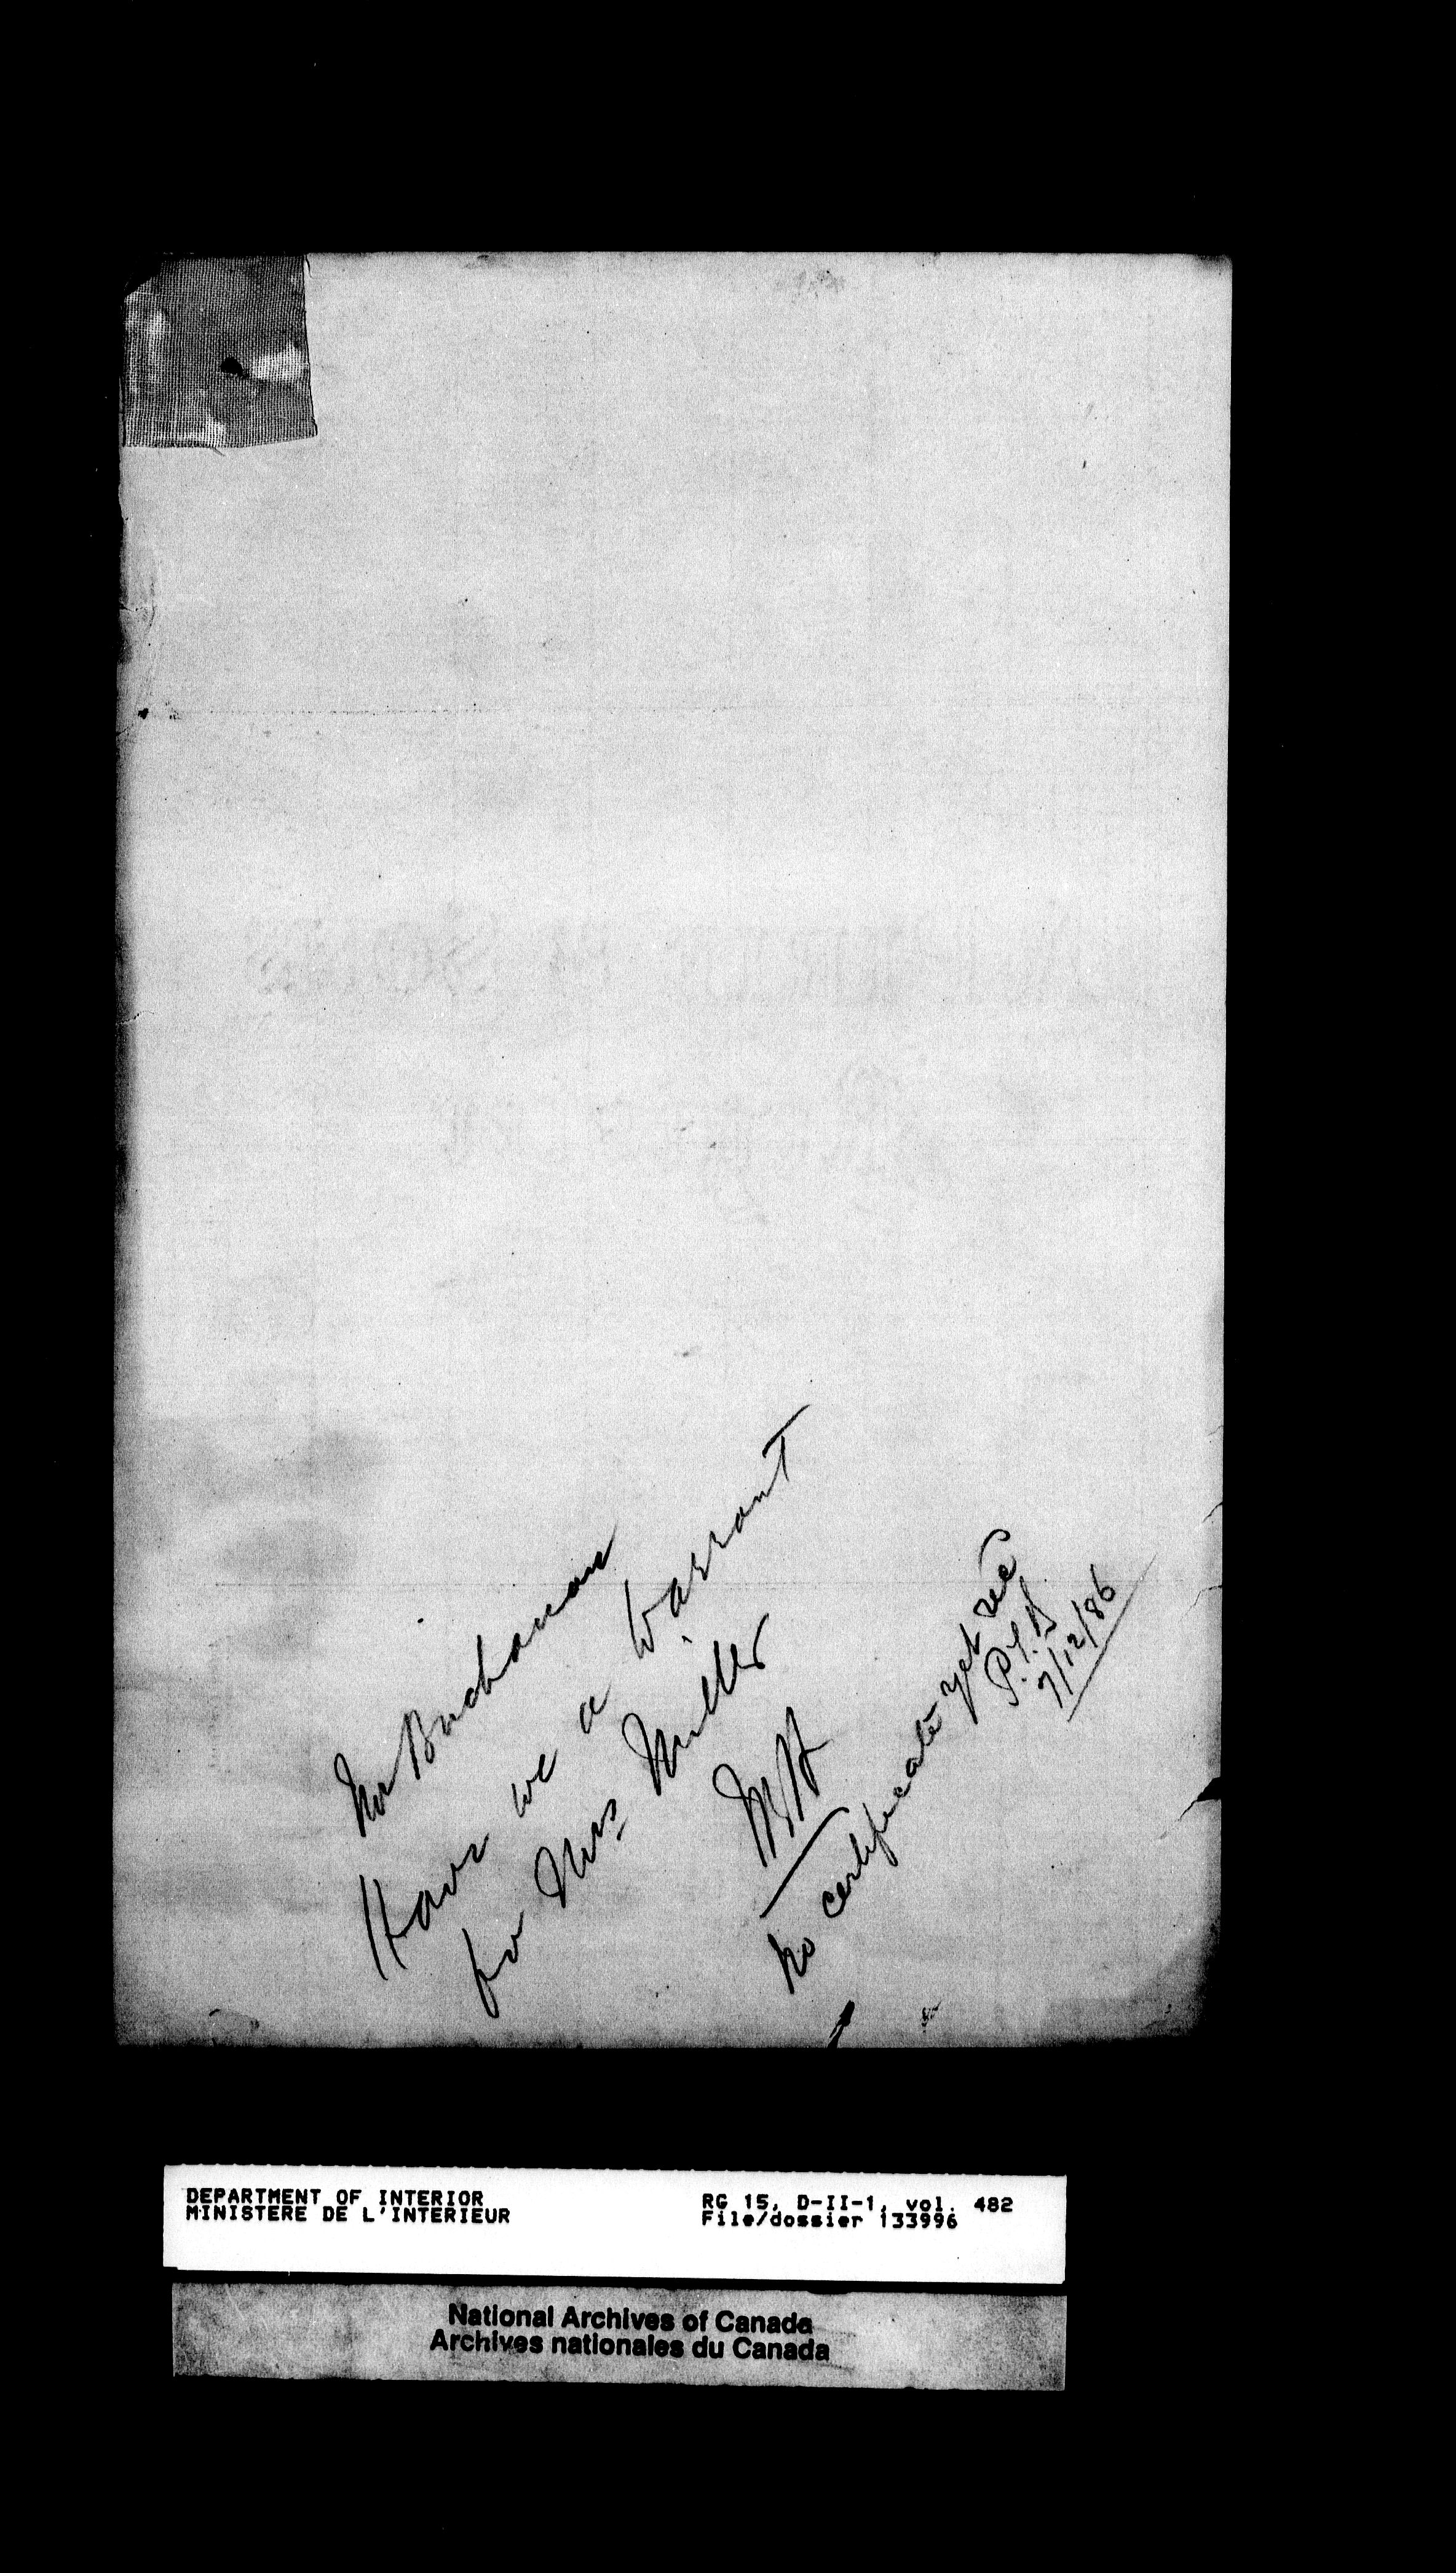 Mr Buchanan
Have we a Warrant
for Mrs Miller
No certificate yet rec
7/12/86
DEPARTMENT OF INTERIOR
MINISTERE DE L'INTERIEUR
RG 15, D-II-1, vol. 482
File/dossier 133996
National Archives of Canada
Archives nationales du Canada